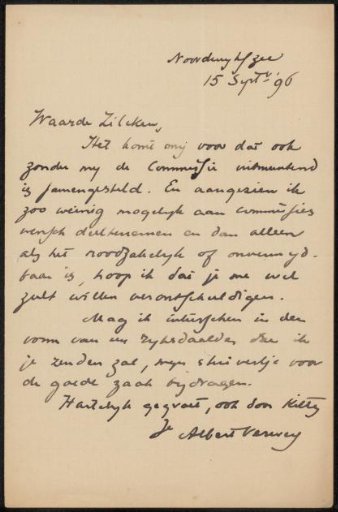 Noordwijk/Zee
15 Sept. '96
Waarde Zilcken,
Het komt mij voor dat ook
zonder mij de Commissie uitmuntend
is samengesteld. En aangezien ik
zoo weinig mogelijk aan commissies
wensch deeltenemen en dan alleen
als het noodzakelijk of onvermijd-
baar is, hoop ik dat je me wel
zult willen verontschuldigen.
Mag ik intusschen in den
vorm van een rijksdaalder die ik
je zenden zal, mijn schierfje voor
de goede zaak bijdragen.
Hartelijk gegroet, ook door Kitty
Je Albert Verwey